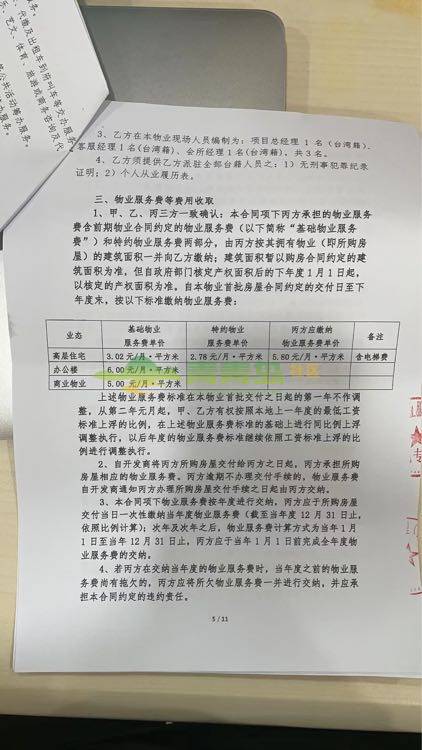 服务。
代缴及出租车到册叫车等交办服务
乐、艺文、体育、旅游或商务咨询及代
公共活动筹办服务。
办服务。
3、乙方在本物业现场人员编制为：项目总经理 1 名（台湾籍）、
客服经理 1 名(台湾籍）、会所经理 1 名(台湾籍）、共 3 名。
4、乙方须提供乙方派驻全部台籍人员之：1）无刑事犯罪纪录
证明；2）个人从业履历表。
三、物业服务费等费用收取
1、甲、乙、丙三方一致确认：本合同项下丙方承担的物业服务
费含前期物业合同约定的物业服务费（以下简称“基础物业服务
费”）和特约物业服务费两部分，由丙方按其拥有物业（即所购房
屋）的建筑面积一并向乙方缴纳；建筑面积暂以购房合同约定的建
筑面积为准，但自政府部门核定产权面积后的下年度 1 月 1 日起，
以核定的产权面积为准。自本物业首批房屋合同约定的交付日至下
年度末，按以下标准缴纳物业服务费：
业态 基础物业服务费单价 特约物业服务费单价 丙方应缴纳物业服务费单价 备注
高层住宅 3.02 元/月·平方米 2.78 元/月·平方米 5.80 元/月·平方米 含电梯费
办公楼 6.00 元/月·平方米
商业物业 5.00 元/月·平方米
青青岛社区
上述物业服务费标准在本物业首批交付之日起的第一年不作调
整，从第二年元月起，甲、乙方有权按照本地上一年度的最低工资
标准上浮的比例，在上述物业服务费标准的基础上进行同比例上浮
调整执行，以后年度的物业服务费标准继续依照工资标准上浮的比
例进行调整执行。
2、自开发商将丙方所购房屋交付给丙方之日起，丙方承担所购
房屋相应的物业服务费。丙方逾期不办理交付手续的，物业服务费
自开发商通知丙方办理所购房屋交付手续之日起由丙方交纳。
3、本合同项下物业服务费按年度进行交纳，丙方应于所购房屋
交付当日一次性缴纳当年度物业服务费（截至当年度 12 月 31 日止，
依照比例计算）；次年及次年之后，物业服务费计算方式为当年 1 月
1 日至当年 12 月 31 日止，丙方应于当年 1 月 1 日前完成全年度物
业服务费的交纳。
4、若丙方在交纳当年度的物业服务费时，当年度之前的物业服
务费尚有拖欠的，丙方应将所欠物业服务费一并进行交纳，并应承
担本合同约定的违约责任。
5 / 11